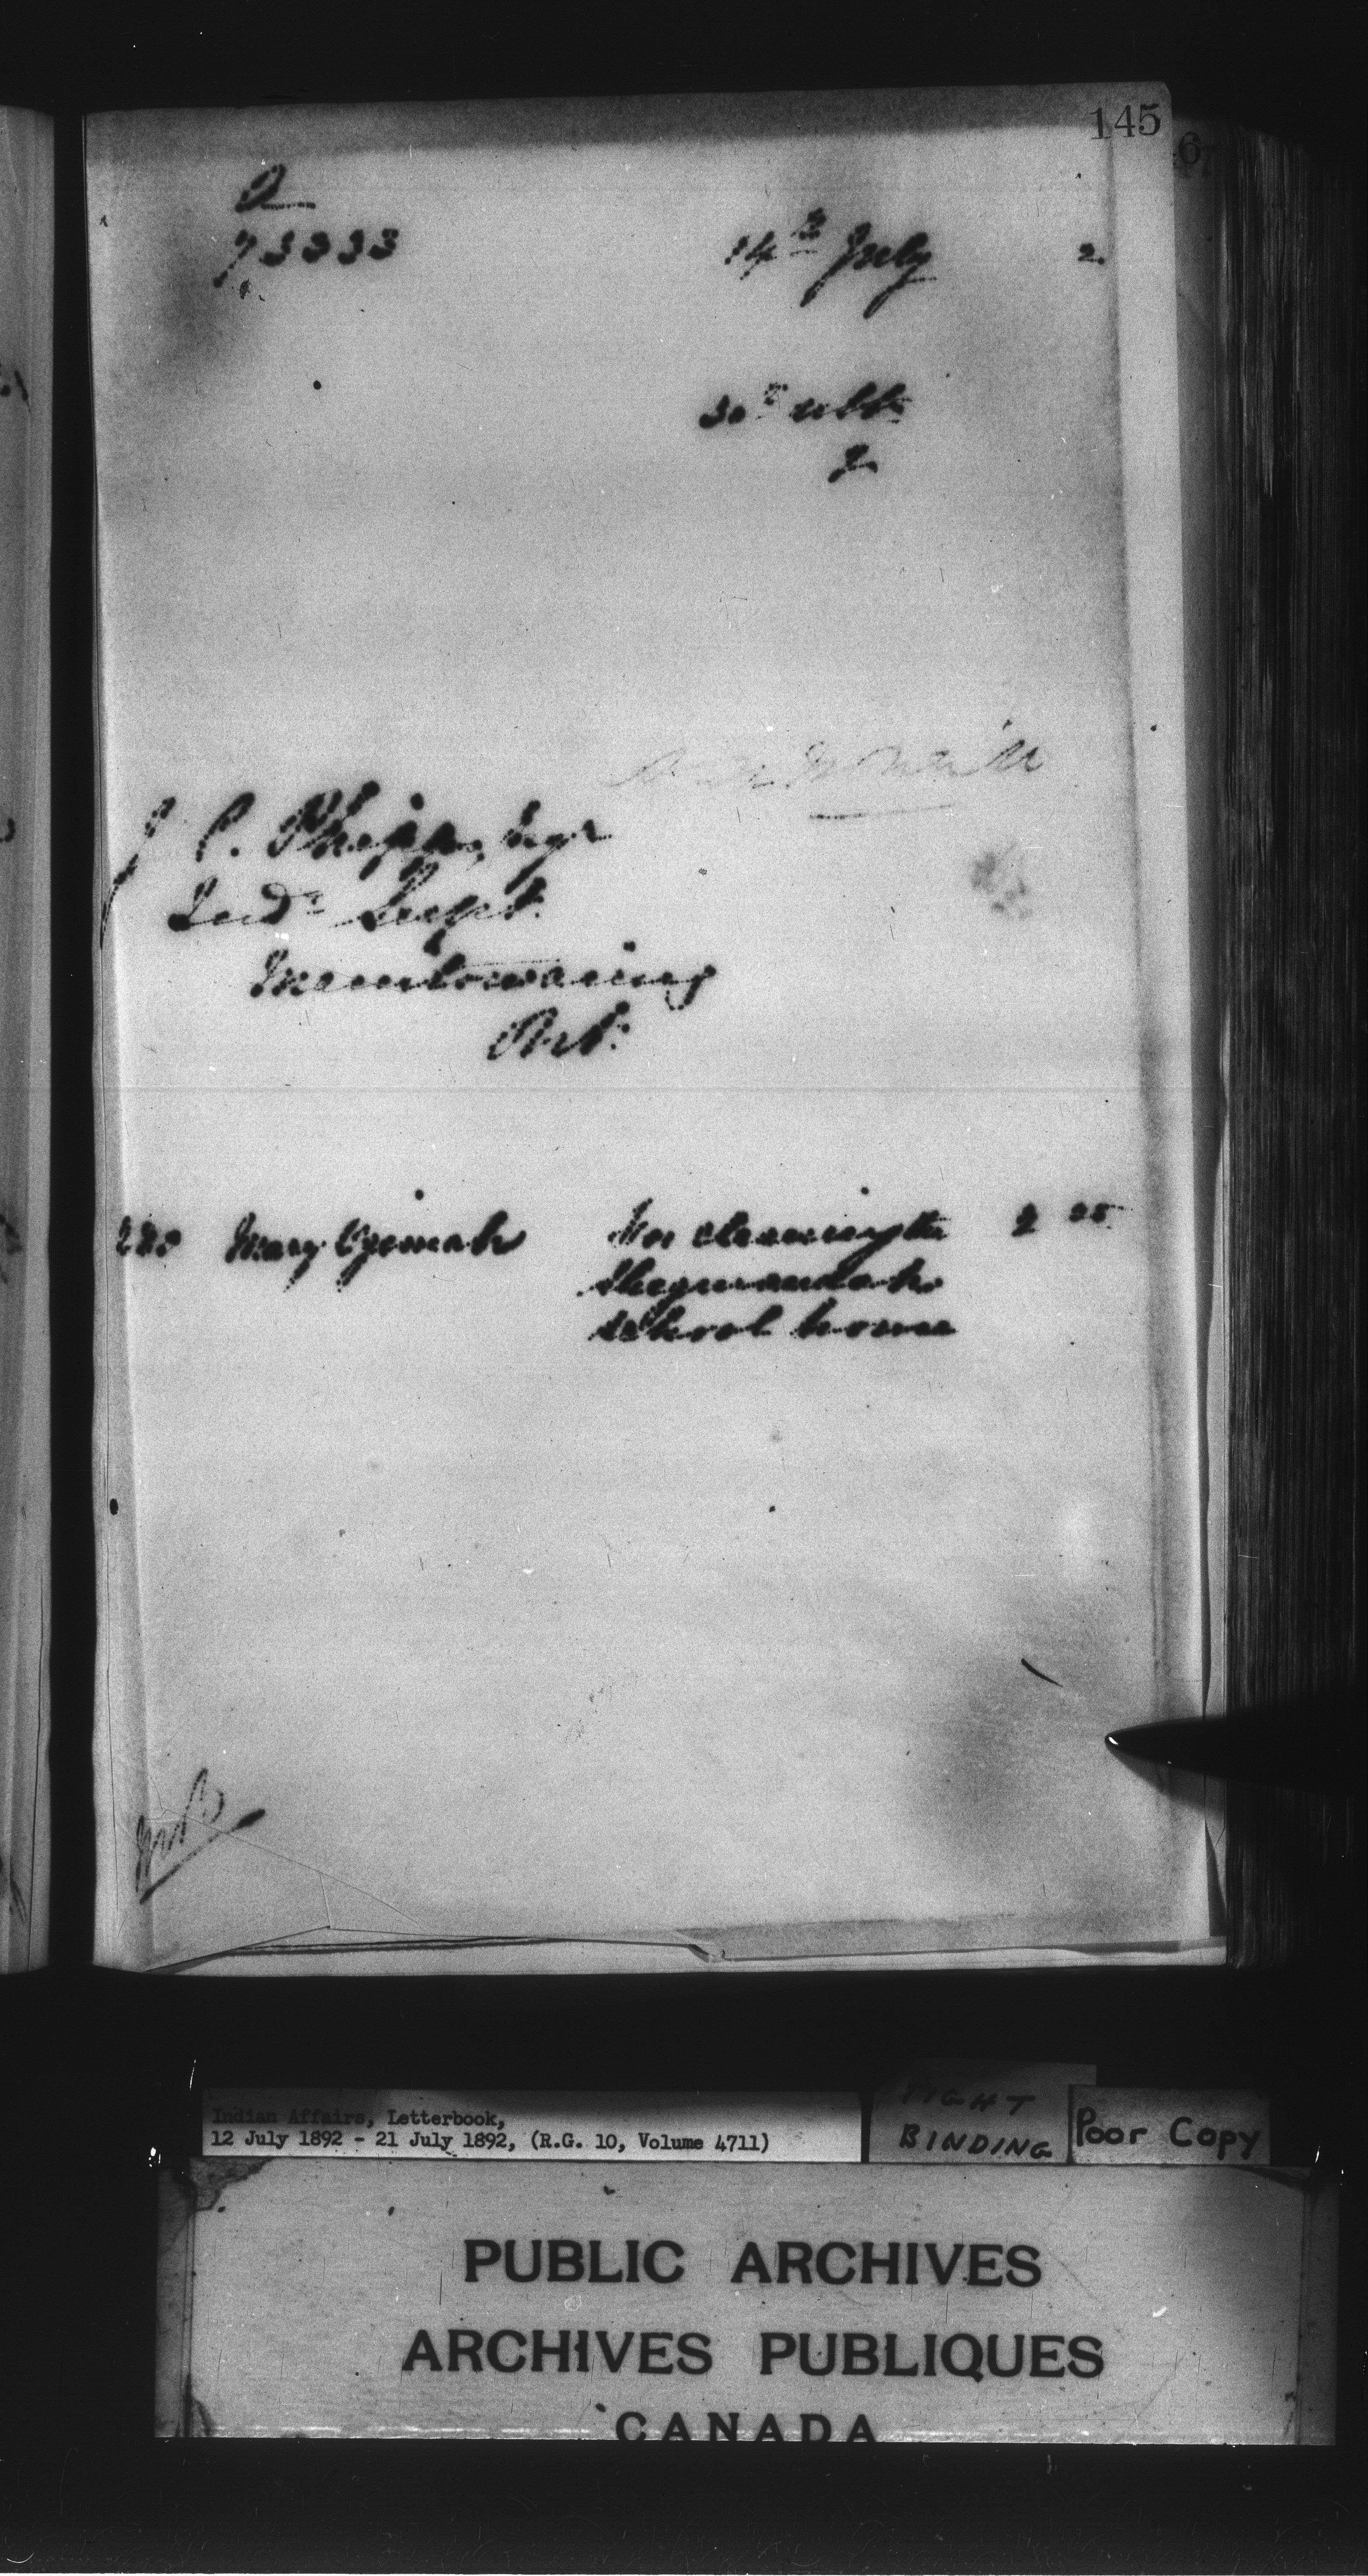 145
73333
14th July 2.
30th ulto
2
J C. Phipps, Esqr
Indn Supt.
Manitowaning
Ont.
Mary Ogemah for cleaning the 2 00
Sheguiandah
school house
Indian Affairs, Letterbook,
12 July 1892 - 21 July 1892, (R.G. 10, Volume 4711)
TIGHT
BINDING
Poor Copy
PUBLIC ARCHIVES
ARCHIVES PUBLIQUES
CANADA